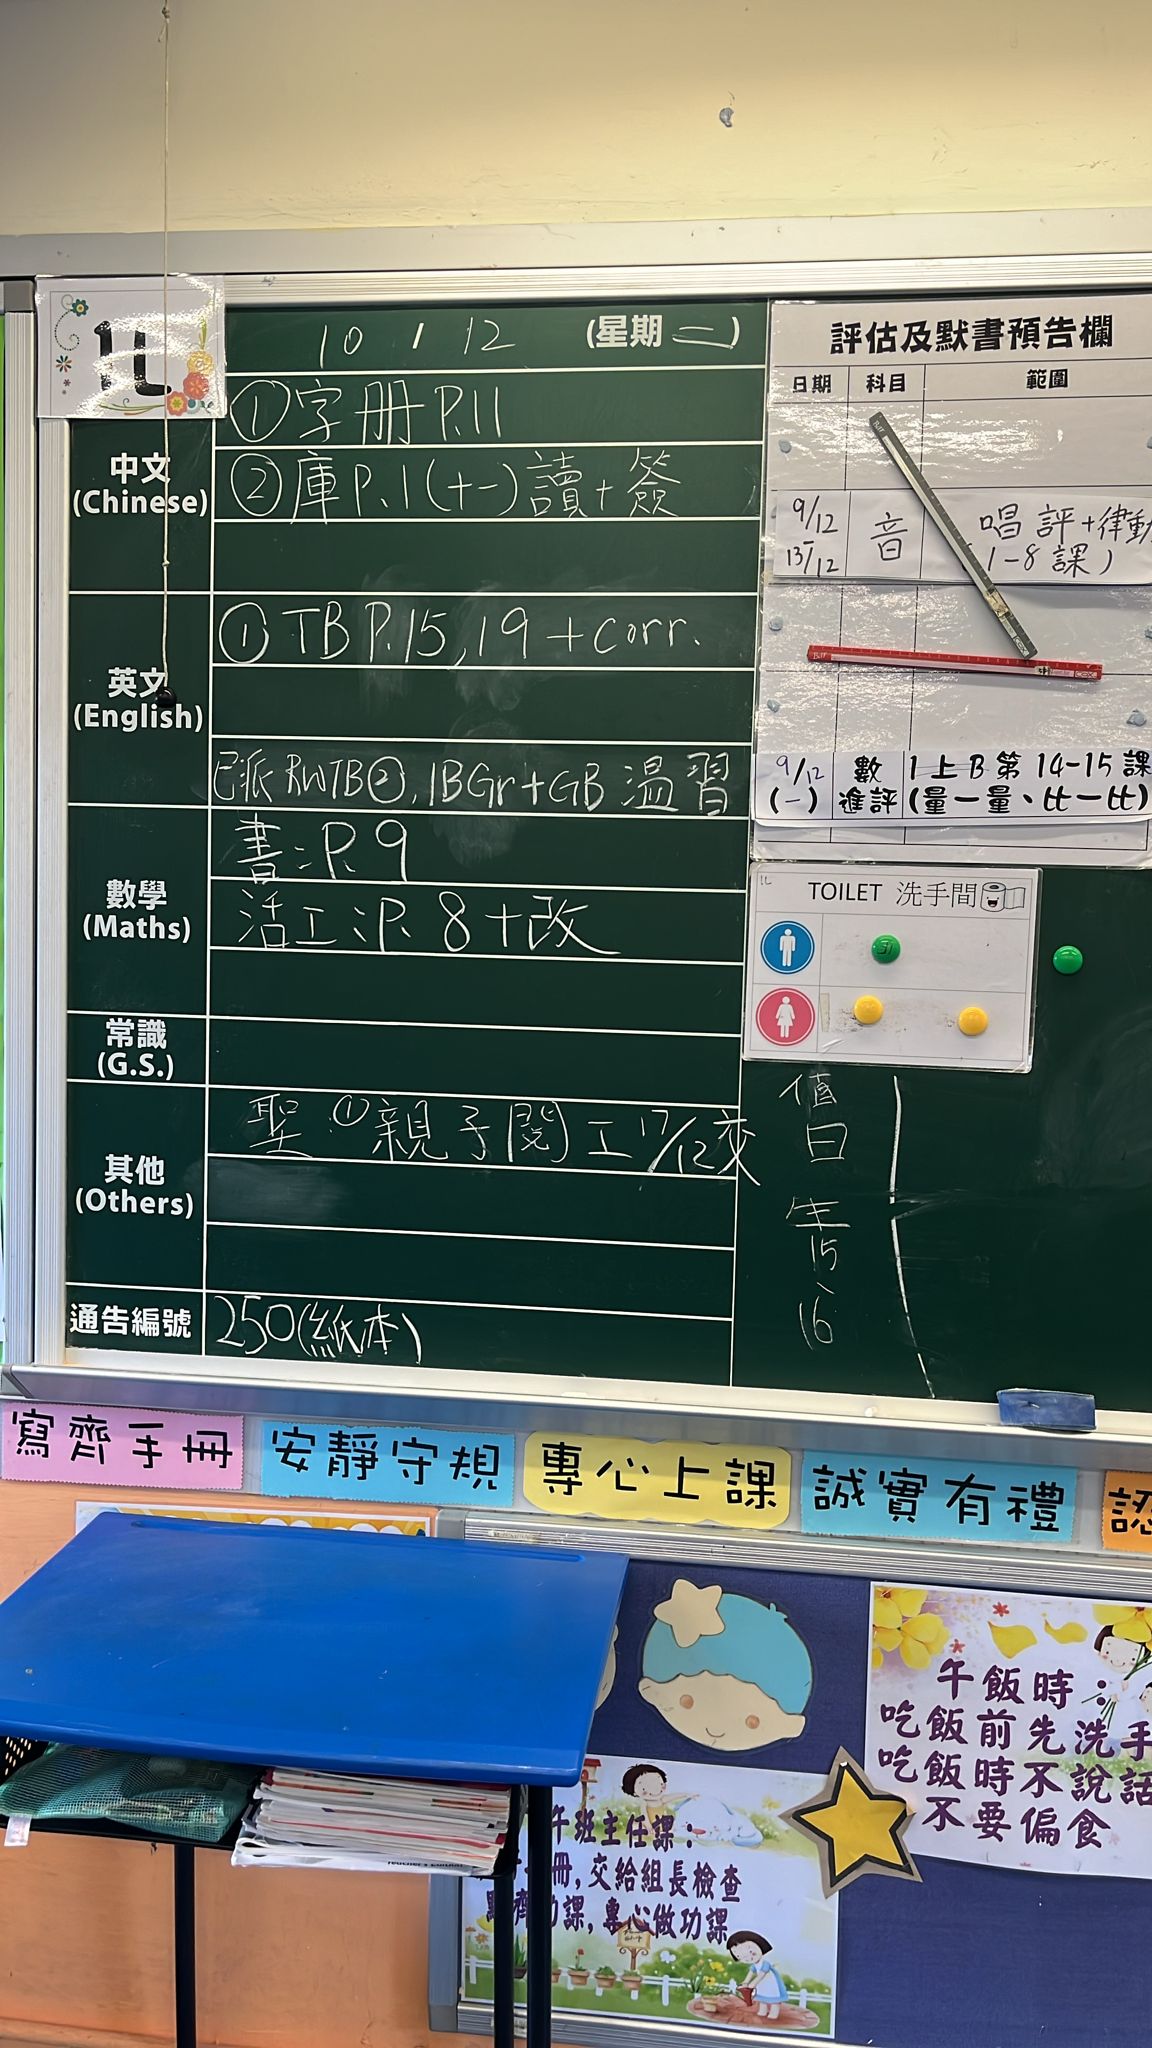 1L
10 / 12 (星期二)
中文
(Chinese)
①字册 P.11
②庫 P.1 (十一) 讀+簽
英文
(English)
① TB P.15, 19 + corr.
已派 RWTB②, 1BGr+GB 温習
數學
(Maths)
書:P. 9
活工:P. 8+改
常識
(G.S.)
其他
(Others)
聖:①親子閱工 17/12交
通告編號
250(紙本)
評估及默書預告欄
日期 科目 範圍
9/12 音 唱評+律動
13/12 1-8課)
9/12 數 1上B第14-15課
(一) 進評 (量一量、比一比)
1L
TOILET 洗手間
31
值
日
生
15
、
16
寫齊手冊
安靜守規
專心上課
誠實有禮
午飯時：
吃飯前先洗手
吃飯時不說話
不要偏食
午班主任課：
冊, 交給組長檢查
功課, 專心做功課